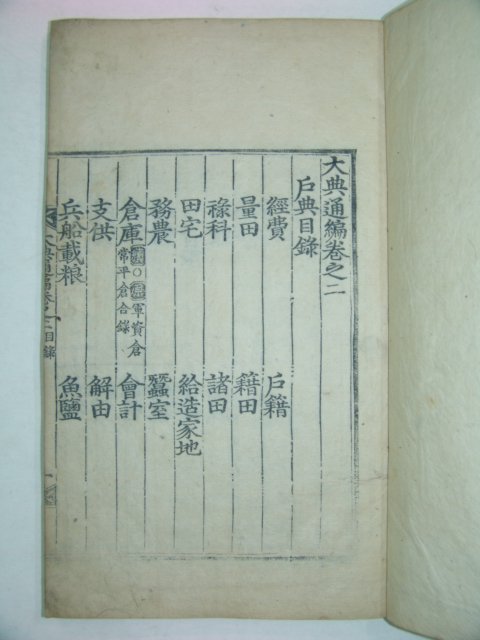 大典通編卷之二
戶典目錄
經費 戶籍
量田 籍田
祿科 諸田
田宅 給造家地
務農 蠶室
倉庫 ○ 軍資倉
常平倉合錄 會計
支供 解由
兵船載粮 魚鹽
大典通編卷之二目錄 一